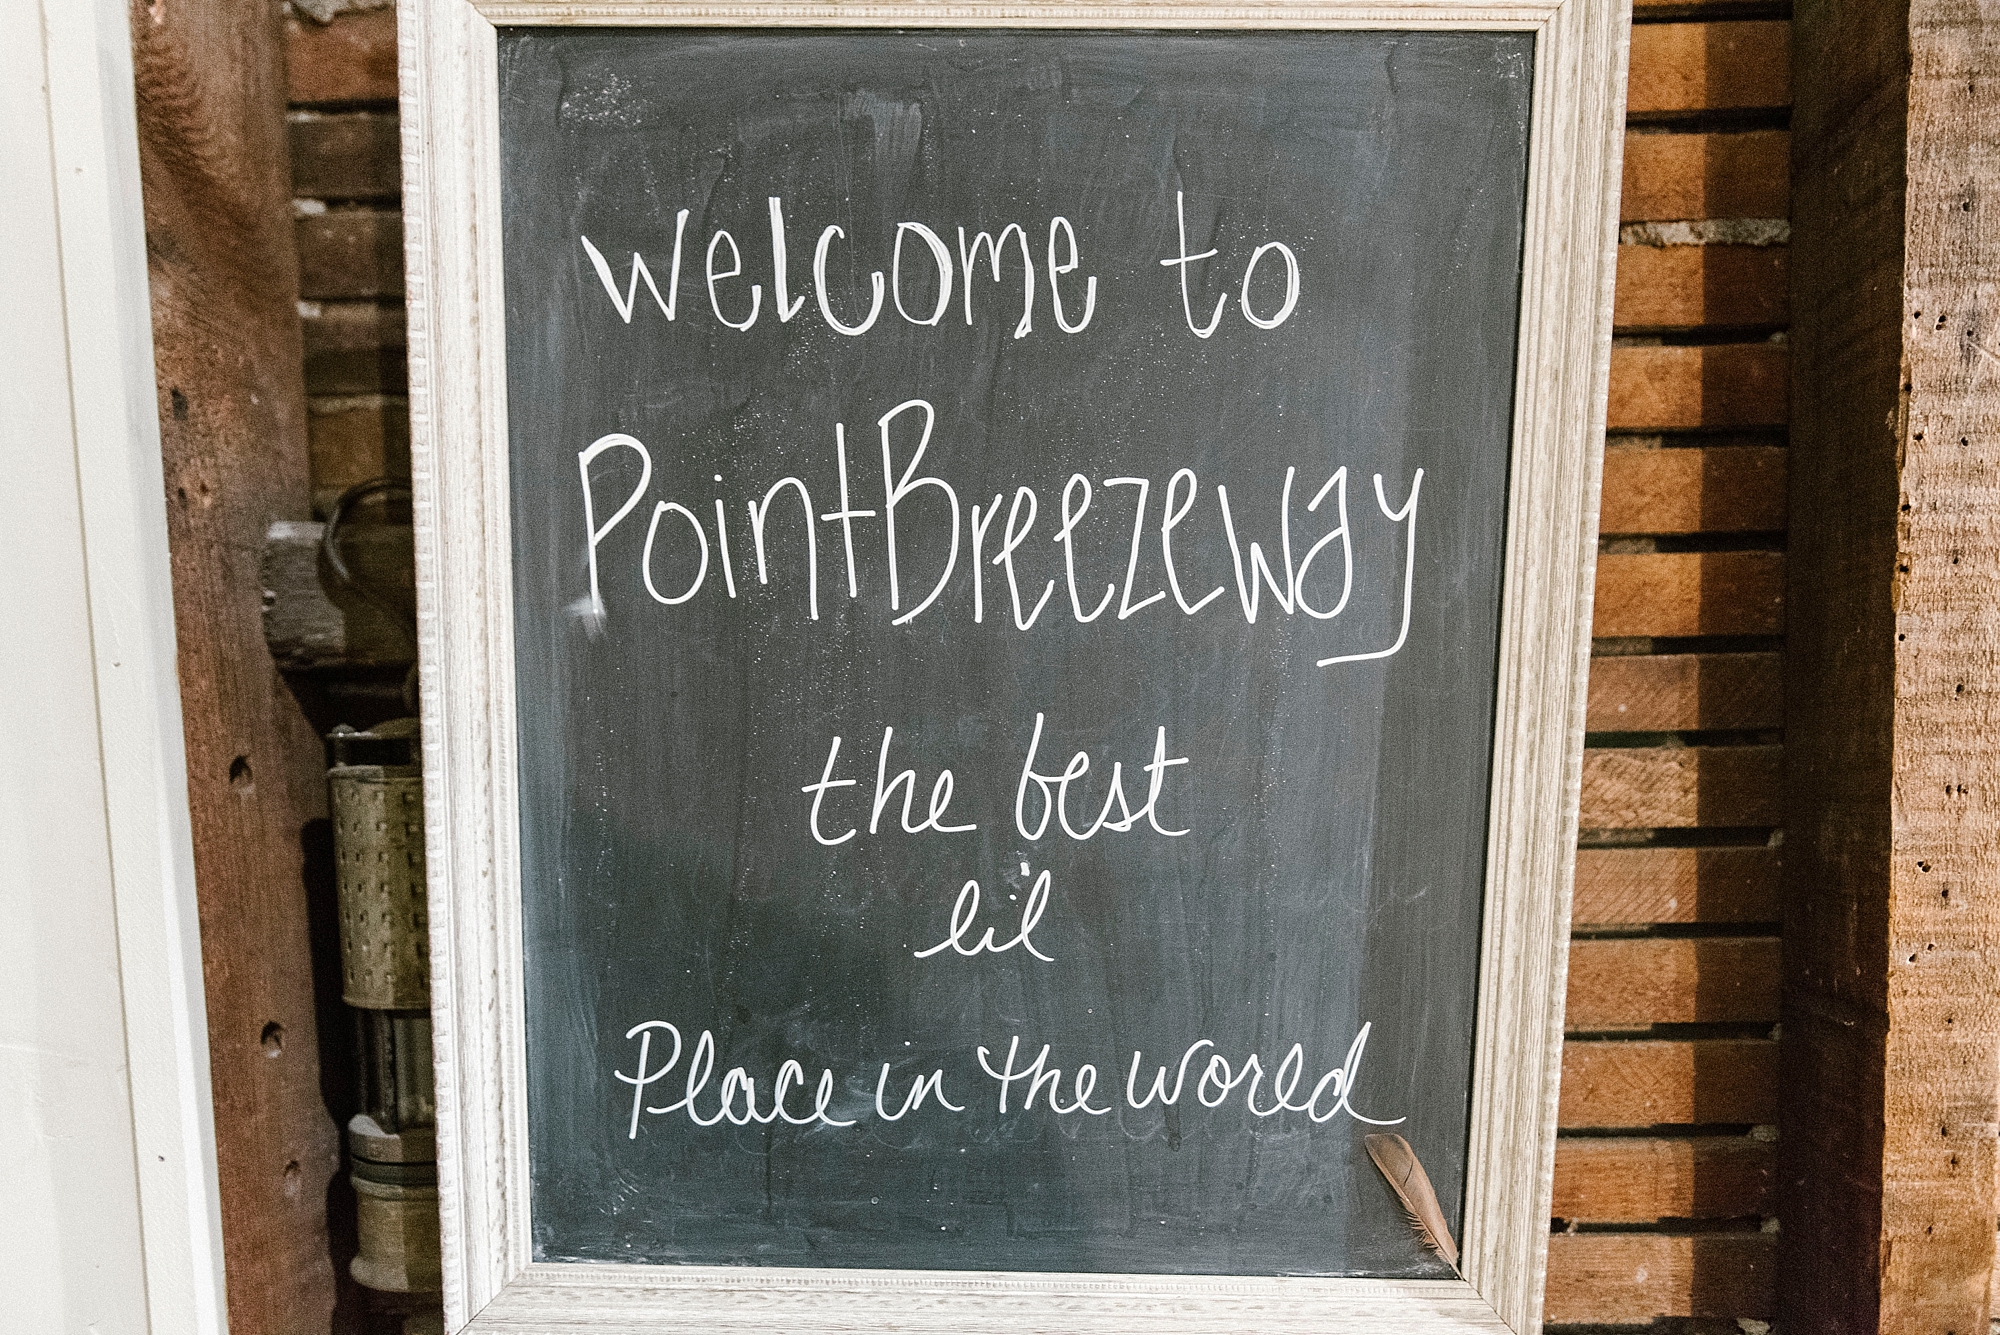 welcome to
PointBreezeway
the best
lil
Place in the world